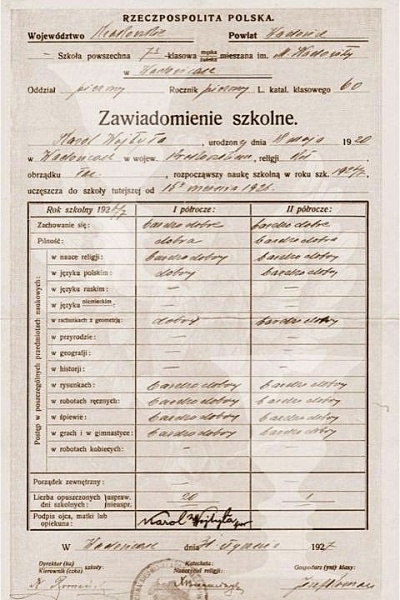 RZECZPOSPOLITA POLSKA.
Województwo Krakowskie Powiat Wadowice
Szkoła powszechna 7 -klasowa męska żeńska mieszana im. M. Wadowity
w Wadowicach
Oddział pierwszy Rocznik pierwszy L. katal. klasowego 60
Zawiadomienie szkolne.
Karol Wojtyła, urodzony dnia 18 maja 1920
w Wadowicach w wojew. Krakowskim, religji
obrządku łac. rozpocząwszy naukę szkolną w roku szk. 1926/7
uczęszcza do szkoły tutejszej od 15 września 1926.
Rok szkolny 1926/7 I półrocze: II półrocze:
Zachowanie się: bardzo dobre bardzo dobre
Pilność: dobra bardzo dobra
Postęp w poszczególnych przedmiotach naukowych:
w nauce religji: bardzo dobry bardzo dobry
w języku polskim: dobry bardzo dobry
w języku ruskim: — —
w języku niemieckim: — —
w rachunkach z geometrją: dobry bardzo dobry
w przyrodzie: — —
w geografji: — —
w historji: — —
w rysunkach: bardzo dobry bardzo dobry
w robotach ręcznych: bardzo dobry bardzo dobry
w śpiewie: bardzo dobry bardzo dobry
w grach i w gimnastyce: bardzo dobry bardzo dobry
w robotach kobiecych: — —
Porządek zewnętrzny: — —
Liczba opuszczonych dni szkolnych: uspraw. 20 1
nieuspr.
Podpis ojca, matki lub opiekuna: Karol Wojtyła
W Wadowicach dnia 31 stycznia 1927
Dyrektor (ka) Kierownik (czka) szkoły
Katecheta: Nauczyciel religji:
Gospodarz (yni) klasy: